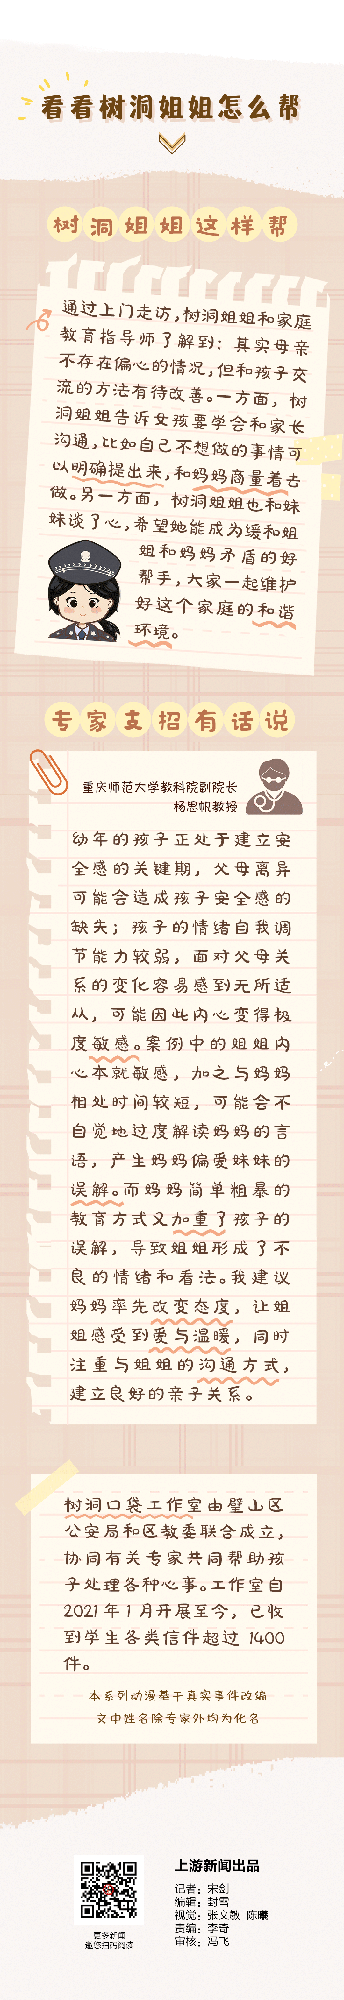 看看树洞姐姐怎么帮
树洞姐姐这样帮
通过上门走访,树洞姐姐和家庭
教育指导师了解到：其实母亲
不存在偏心的情况,但和孩子交
流的方法有待改善。一方面，树
洞姐姐告诉女孩要学会和家长
沟通,比如自己不想做的事情可
以明确提出来,和妈妈商量着去
做。另一方面，树洞姐姐也和妹
妹谈了心,希望她能成为缓和姐
姐和妈妈矛盾的好
帮手,大家一起维护
好这个家庭的和谐
环境。
专家支招有话说
重庆师范大学教科院副院长
杨思帆教授
幼年的孩子正处于建立安
全感的关键期，父母离异
可能会造成孩子安全感的
缺失；孩子的情绪自我调
节能力较弱，面对父母关
系的变化容易感到无所适
从，可能因此内心变得极
度敏感。案例中的姐姐内
心本就敏感，加之与妈妈
相处时间较短，可能会不
自觉地过度解读妈妈的言
语，产生妈妈偏爱妹妹的
误解。而妈妈简单粗暴的
教育方式又加重了孩子的
误解，导致姐姐形成了不
良的情绪和看法。我建议
妈妈率先改变态度，让姐
姐感受到爱与温暖，同时
注重与姐姐的沟通方式，
建立良好的亲子关系。
树洞口袋工作室由璧山区
公安局和区教委联合成立，
协同有关专家共同帮助孩
子处理各种心事。工作室自
2021年1月开展至今，已收
到学生各类信件超过 1400
件。
本系列动漫基于真实事件改编
文中姓名除专家外均为化名
上游新闻出品
记者：宋剑
编辑：封雪
视觉：张文敏 陈曦
责编：李奇
审核：冯飞
更多新闻
邀您扫码阅读